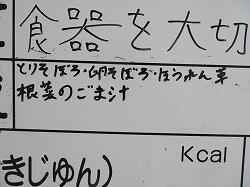 食器を大切
とりそぼろ・卵そぼろ・ほうれん草
根菜のごま汁
Kcal
きじゅん)